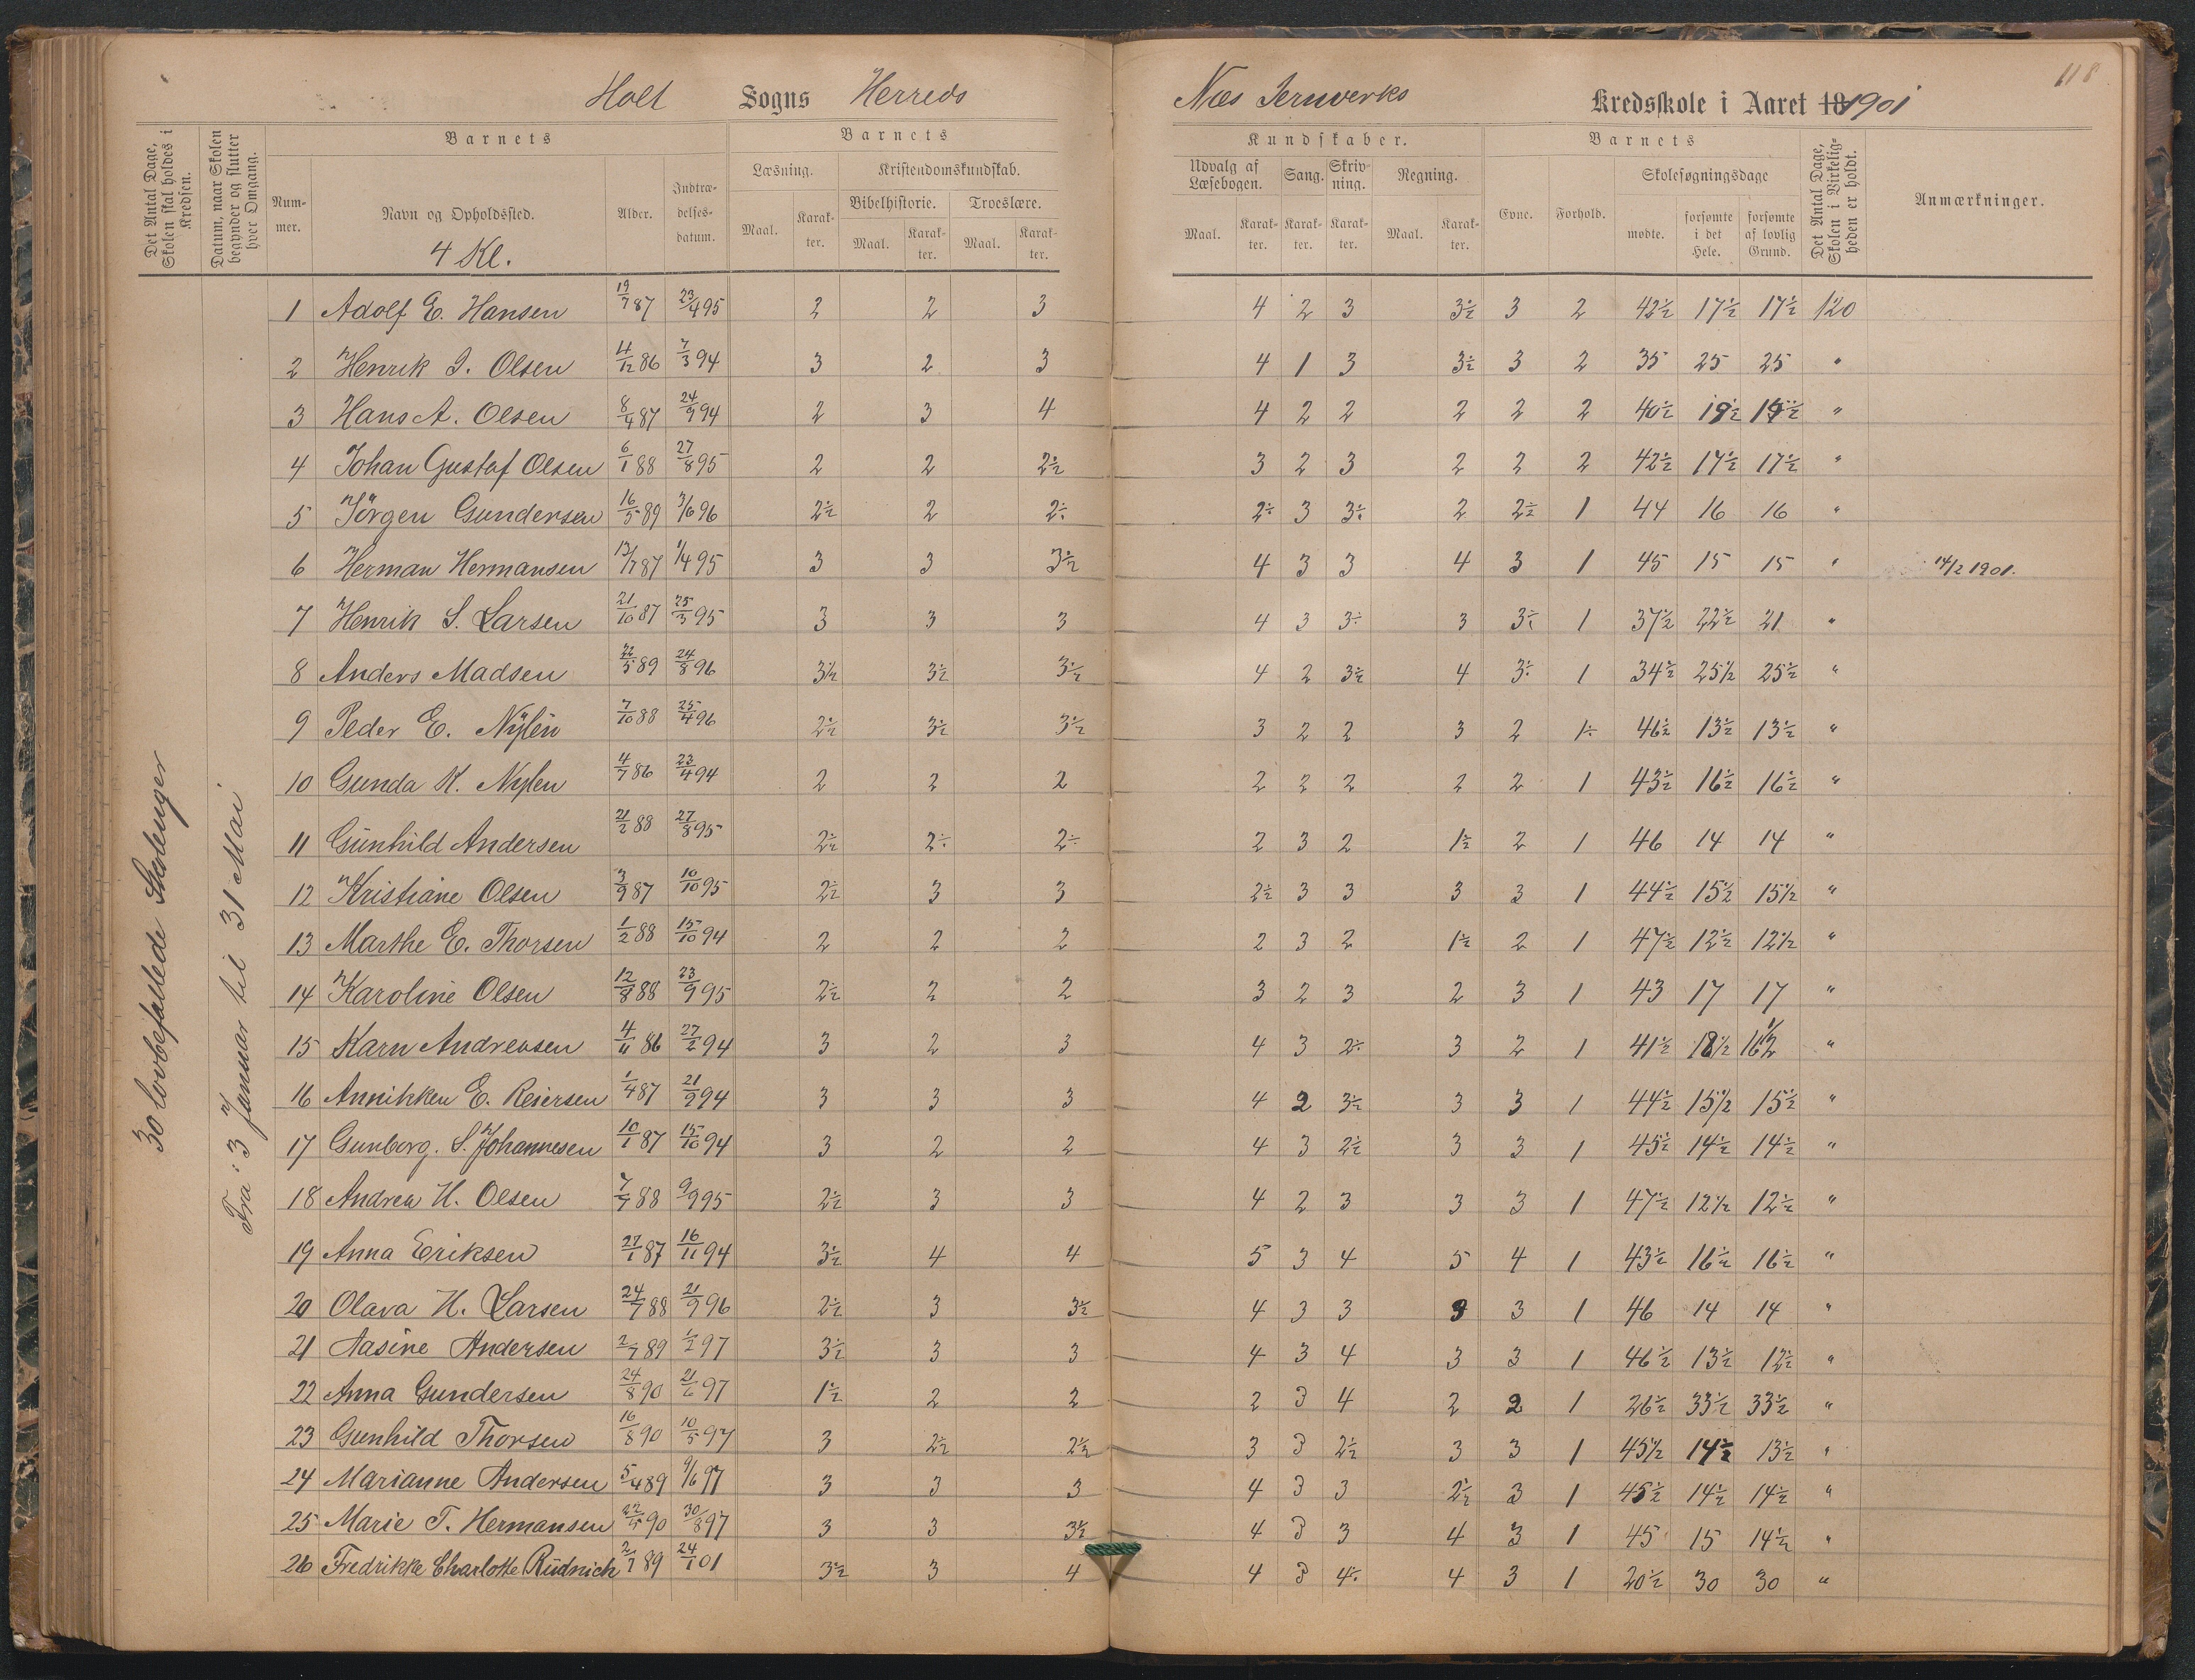 118
Holt Sogns Herreds Næs Jernverks Kredsskole i Aaret 18 1901
Det Antal Dage, Skolen skal holdes i Kredsen.
Datum, naar Skolen begynder og slutter hver Omgang.
Barnets
Num-mer.
Navn og Opholdssted.
4 Kl.
Alder.
Indtræ-delses-datum.
Barnets
Læsning.
Maal. Karak-ter.
Kristendomskundskab.
Bibelhistorie. Troeslære.
Maal. Karak-ter. Maal. Karak-ter.
Kundskaber.
Udvalg af Læsebogen. Sang. Skriv-ning. Regning.
Maal. Karak-ter. Karak-ter. Karak-ter. Maal. Karak-ter.
Barnets
Evne. Forhold.
Skolesøgningsdage
mødte. forsømte i det Hele. forsømte af lovlig Grund.
Det Antal Dage, Skolen i Virkelig-heden er holdt.
Anmærkninger.
30 lovbefallede
Fra 3 Januar til 31 Mai
1 Adolf E. Hansen 19/7 87 23/4 95 2 2 3 4 2 3 3½ 3 2 42½ 17½ 17½ 120
2 Henrik I. Olsen 4/12 86 7/3 94 3 2 3 4 1 3 3½ 3 2 35 25 25 "
3 Hans A. Olsen 8/4 87 24/9 94 2 3 4 4 2 2 2 2 2 40½ 19½ 19½ "
4 Johan Gustaf Olsen 6/1 88 27/8 95 2 2 2½ 3 2 3 2 2 2 42½ 17½ 17½ "
5 Jörgen Gundersen 16/5 89 3/6 96 2½ 2 2÷ 2÷ 3 3÷ 2 2½ 1 44 16 16 "
6 Herman Hermansen 13/7 87 1/4 95 3 3 3½ 4 3 3 4 3 1 45 15 15 " 14/2 1901.
7 Henrik S. Larsen 21/10 87 25/3 95 3 3 3 4 3 3÷ 3 3÷ 1 37½ 22½ 21 "
8 Anders Madsen 22/5 89 24/8 96 3½ 3½ 3½ 4 2 3½ 4 3÷ 1 34½ 25½ 25½ "
9 Peder E. Nylén 7/10 88 25/4 96 2½ 3½ 3½ 3 2 2 3 2 1÷ 46½ 13½ 13½ "
10 Gunda K. Nylen 4/7 86 23/4 94 2 2 2 2 2 2 2 2 1 43½ 16½ 16½ "
11 Gunhild Andersen 21/2 88 27/8 95 2½ 2÷ 2÷ 2 3 2 1½ 2 1 46 14 14 "
12 Kristiane Olsen 3/9 87 10/10 95 2½ 3 3 2½ 3 3 3 3 1 44½ 15½ 15½ "
13 Marthe E. Thorsen 1/2 88 15/10 94 2 2 2 2 3 2 1½ 2 1 47½ 12½ 12½ "
14 Karoline Olsen 12/8 88 23/9 95 2½ 2 2 3 2 3 2 3 1 43 17 17 "
15 Karn Andreasen 4/11 86 27/2 94 3 2 3 4 3 2÷ 3 2 1 41½ 18½ 16½ "
16 Annikken E. Reiersen 1/4 87 21/9 94 3 3 3 4 2 3½ 3 3 1 44½ 15½ 15½ "
17 Gunborg. S. Johannesen 10/1 87 15/10 94 3 2 2 4 3 2½ 3 3 1 45½ 14½ 14½ "
18 Andrea H. Olsen 7/7 88 9/9 95 2½ 3 3 4 2 3 3 3 1 47½ 12½ 12½ "
19 Anna Eriksen 27/1 87 16/11 94 3½ 4 4 5 3 4 5 4 1 43½ 16½ 16½ "
20 Olava H. Larsen 24/7 88 21/9 96 2½ 3 3½ 4 3 3 3 3 1 46 14 14 "
21 Aasine Andersen 2/7 89 1/2 97 3½ 3 3 4 3 4 3 3 1 46½ 13½ 12½ "
22 Anna Gundersen 24/8 90 21/6 97 1½ 2 2 2 3 4 2 2 1 26½ 33½ 33½ "
23 Gunhild Thorsen 16/8 90 10/5 97 3 2½ 2½ 3 3 2½ 3 3 1 45½ 14½ 13½ "
24 Marianne Andersen 5/4 89 9/6 97 3 3 3 4 3 3 2½ 3 1 45½ 14½ 14½ "
25 Marie T. Hermansen 22/5 90 30/8 97 3 3 3½ 4 3 3 4 3 1 45 15 14½ "
26 Fredrikke Charlotte Rüdnich 2/7 89 24/1 01 3½ 3 4 4 3 4÷ 4 3 1 20½ 30 30 "